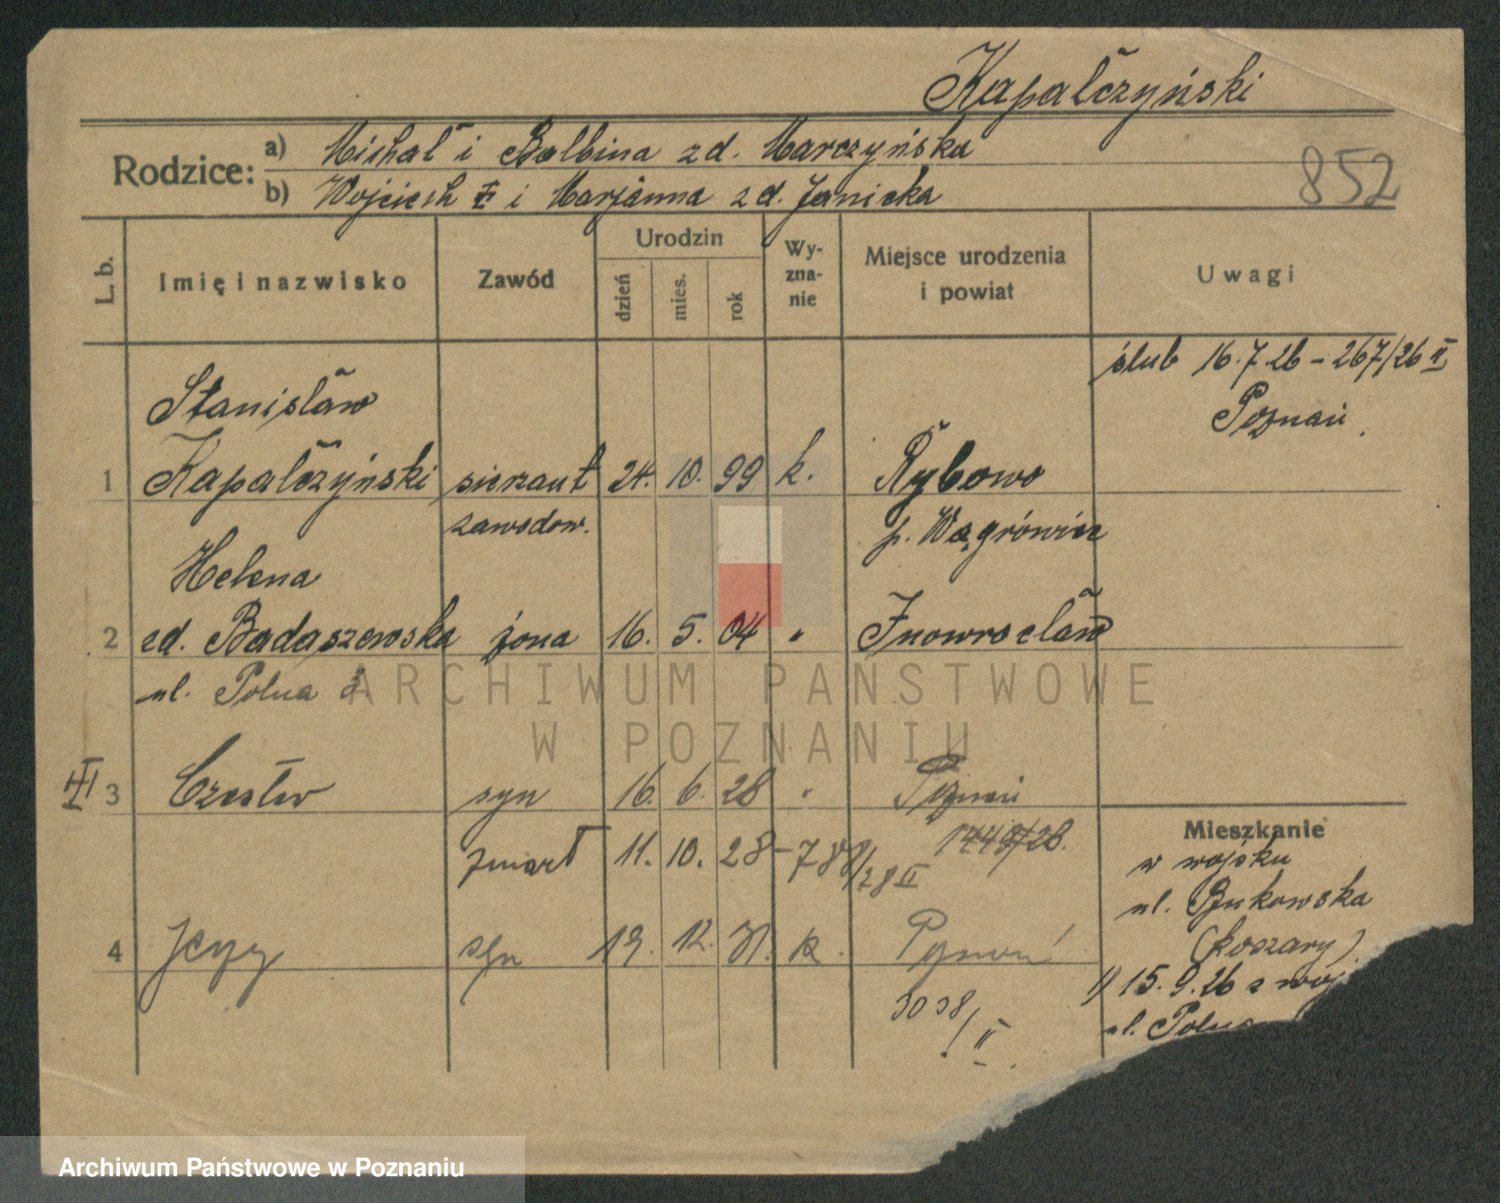 Kapalczyński
852
Rodzice:
a) Michał i Balbina zd. Marczyńska
b) Wojciech i Marjanna zd. Janicka
L. b.
Imię i nazwisko
Zawód
Urodzin
dzień
mies.
rok
Wy-
zna-
nie
Miejsce urodzenia
i powiat
Uwagi
ślub 16.7.26 – 267/26 II
Poznań
Stanisław
1 Kapałczyński sierżant 24. 10. 99 k. Rybowo
zawodow. p. Wągrówiec
Helena
2 zd. Badaszewska żona 16. 5. 04 " Inowrocław
ul. Polna
3 Czesław syn 16. 6. 28 " Poznań
1449/28.
zmarł 11. 10. 28 – 788/28 II
4 Jerzy syn 19. 12. 31. k. Poznań
3038/II
Mieszkanie
w wojsku
ul. Bukowska
(koszary)
1) 15.9.26 z woj
ul. Polna
ARCHIWUM PAŃSTWOWE
W POZNANIU
Archiwum Państwowe w Poznaniu